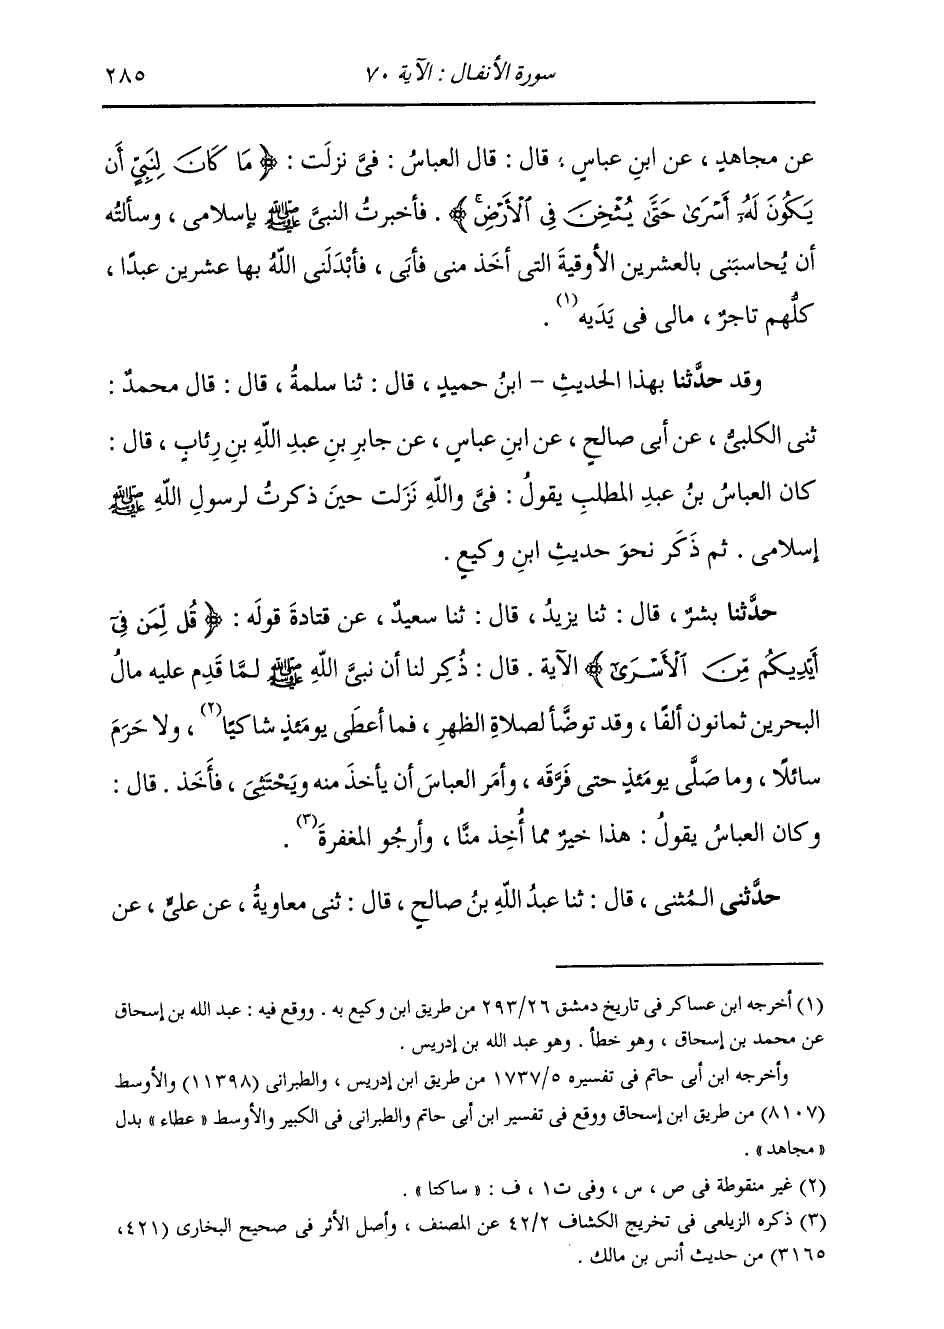 سورة الأنفال : الآية ٧٠ ٢٨٥
عن مجاهدٍ ، عن ابنِ عباسٍ ، قال : قال العباسُ : فىَّ نزلَت : ﴿ مَا كَانَ لِنَبِيٍّ أَن
يَكُونَ لَهُۥٓ أَسْرَىٰ حَتَّىٰ يُثْخِنَ فِى ٱلْأَرْضِۚ ﴾ . فأخبرتُ النبىَّ ﷺ بإسلامى ، وسألتُه
أن يُحاسبَنى بالعشرين الأوقيةَ التى أخَذ منى فأبَى ، فأبْدَلَنى اللَّهُ بها عشرين عبدًا ،
كلُّهم تاجرٌ ، مالى فى يَدَيه(١) .
وقد حدَّثنا بهذا الحديثِ - ابنُ حميدٍ ، قال : ثنا سلمةُ ، قال : قال محمدٌ :
ثنى الكلبىُّ ، عن أبى صالحٍ ، عن ابنِ عباسٍ ، عن جابرِ بنِ عبدِ اللَّهِ بنِ رِئابٍ ، قال :
كان العباسُ بنُ عبدِ المطلبِ يقولُ : فىَّ واللَّهِ نَزَلت حينَ ذكرتُ لرسولِ اللَّهِ ﷺ
إسلامى . ثم ذَكَر نحوَ حديثِ ابنِ وكيعٍ .
حدَّثنا بشرٌ ، قال : ثنا يزيدُ ، قال : ثنا سعيدٌ ، عن قتادةَ قولَه : ﴿ قُل لِّمَن فِىٓ
أَيْدِيكُم مِّنَ ٱلْأَسْرَىٰٓ ﴾ الآية . قال : ذُكِر لنا أن نبىَّ اللَّهِ ﷺ لمَّا قَدِم عليه مالُ
البحرين ثمانون ألفًا ، وقد توضَّأ لصلاةِ الظهرِ ، فما أعطَى يومَئذٍ شاكيًا(٢) ، ولا حَرَمَ
سائلًا ، وما صَلَّى يومَئذٍ حتى فَرَّقَه ، وأمَر العباسَ أن يأخذَ منه ويَحْتَثِىَ ، فأَخَذ . قال :
وكان العباسُ يقولُ : هذا خيرٌ مما أُخِذ منَّا ، وأرجُو المغفرةَ(٣) .
حدَّثنى المُثنى ، قال : ثنا عبدُ اللَّهِ بنُ صالحٍ ، قال : ثنى معاويةُ ، عن علىٍّ ، عن
(١) أخرجه ابن عساكر فى تاريخ دمشق ٢٩٣/٢٦ من طريق ابن وكيع به . ووقع فيه : عبد الله بن إسحاق
عن محمد بن إسحاق ، وهو خطأ . وهو عبد الله بن إدريس .
وأخرجه ابن أبى حاتم فى تفسيره ١٧٣٧/٥ من طريق ابن إدريس ، والطبرانى (١١٣٩٨) والأوسط
(٨١٠٧) من طريق ابن إسحاق ووقع فى تفسير ابن أبى حاتم والطبرانى فى الكبير والأوسط « عطاء » بدل
« مجاهد » .
(٢) غير منقوطة فى ص ، س ، وفى ت١ ، ف : « ساكتا » .
(٣) ذكره الزيلعى فى تخريج الكشاف ٤٢/٢ عن المصنف ، وأصل الأثر فى صحيح البخارى (٤٢١،
٣١٦٥) من حديث أنس بن مالك .